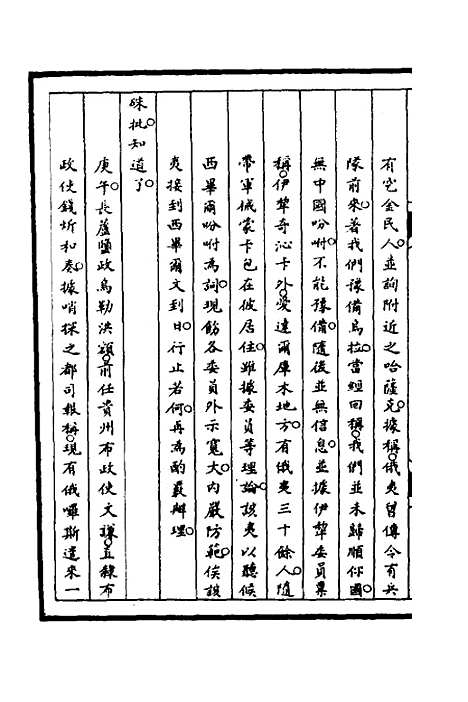 有宅金民人。並詢附近之哈薩克。據稱。俄夷曾傳令有兵
隊前來。著我們豫備烏拉。當經回稱。我們並未歸順你國。
無中國吩咐。不能豫備。隨後並無信息。並據伊犂委員稟
稱。伊犂奇沁卡外。愛達爾庫木地方。有俄夷三十餘人。隨
帶軍械蒙卡包在彼居住。雖據委員等理論。該夷以聽候
西畢爾吩咐為詞。現飭各委員外示寬大。內嚴防範。俟該
夷接到西畢爾文到日。行止若何。再為酌覈辦理。
硃批。知道了。
庚午。長蘆鹽政烏勒洪額。前任貴州布政使文謙。直隸布
政使錢炘和奏。據哨探之都司報稱。現有俄囉斯遣來一